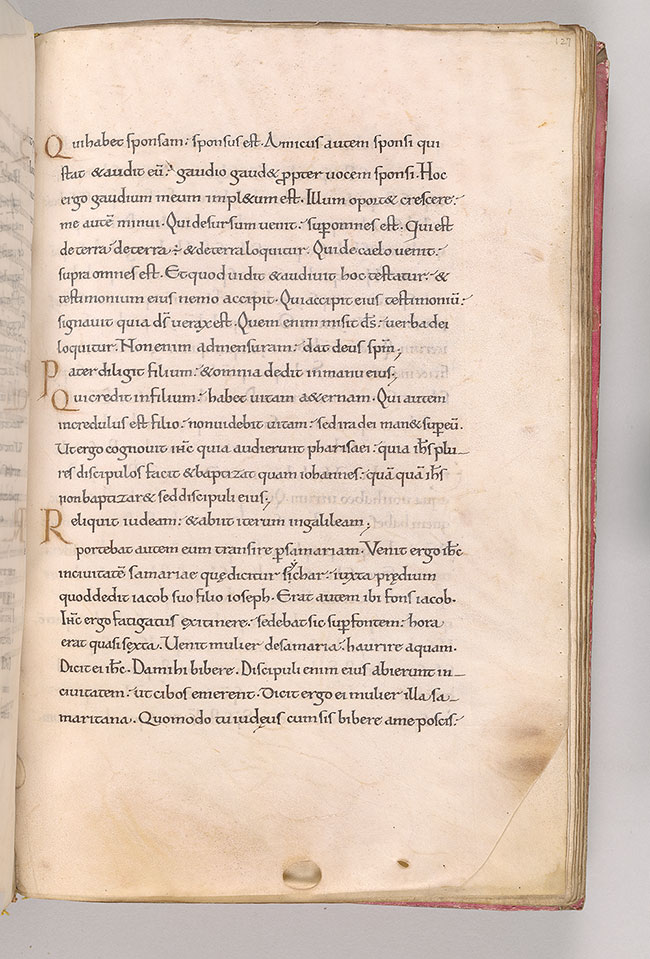 127
Qui habet sponsam: sponsus est. Amicus autem sponsi qui
stat & audit eū: gaudio gaud& ꝓpter uocem sponsi. Hoc
ergo gaudium meum impl&um est. Illum oport& crescere:
me autē minui. Qui desursum uenit: suꝑ omnes est. Qui est
de terra: de terra ÷ & de terra loquitur. Qui de caelo uenit:
supra omnes est. Et quod uidit & audiuit hoc testatur: &
testimonium eius nemo accipit. Qui accipit eius testimoniū:
signauit quia d̄s uerax est. Quem enim misit d̄s: uerba dei
loquitur. Non enim ad mensuram: dat deus sp̄m;
Pater diligit filium: & omnia dedit in manu eius;
Qui credit in filium: habet uitam a&ernam. Qui autem
incredulus est filio: non uidebit uitam: sed ira dei man& suꝑ eū.
Ut ergo cognouit ih̄c quia audierunt pharisaei: quia ih̄s plu-
res discipulos facit & baptizat quam iohannes: quā quā ih̄s
non baptizar& sed discipuli eius;
Reliquit iudeam: & abiit iterum in galileam;
portebat autem eum transire ꝑ samariam. Venit ergo ih̄c
in ciuitatē samariae quę dicitur sychar: iuxta prędium
quod dedit iacob suo filio ioseph. Erat autem ibi fons iacob.
Ih̄c ergo fatigatus ex itinere: sedebat sic suꝑ fontem: hora
erat quasi sexta. Uenit mulier de samaria: haurire aquam.
Dicit ei ih̄c. Da mihi bibere. Discipuli enim eius abierunt in-
ciuitatem: ut cibos emerent. Dicit ergo ei mulier illa sa-
maritana. Quomodo tu iudęus cum sis bibere a me poscis: